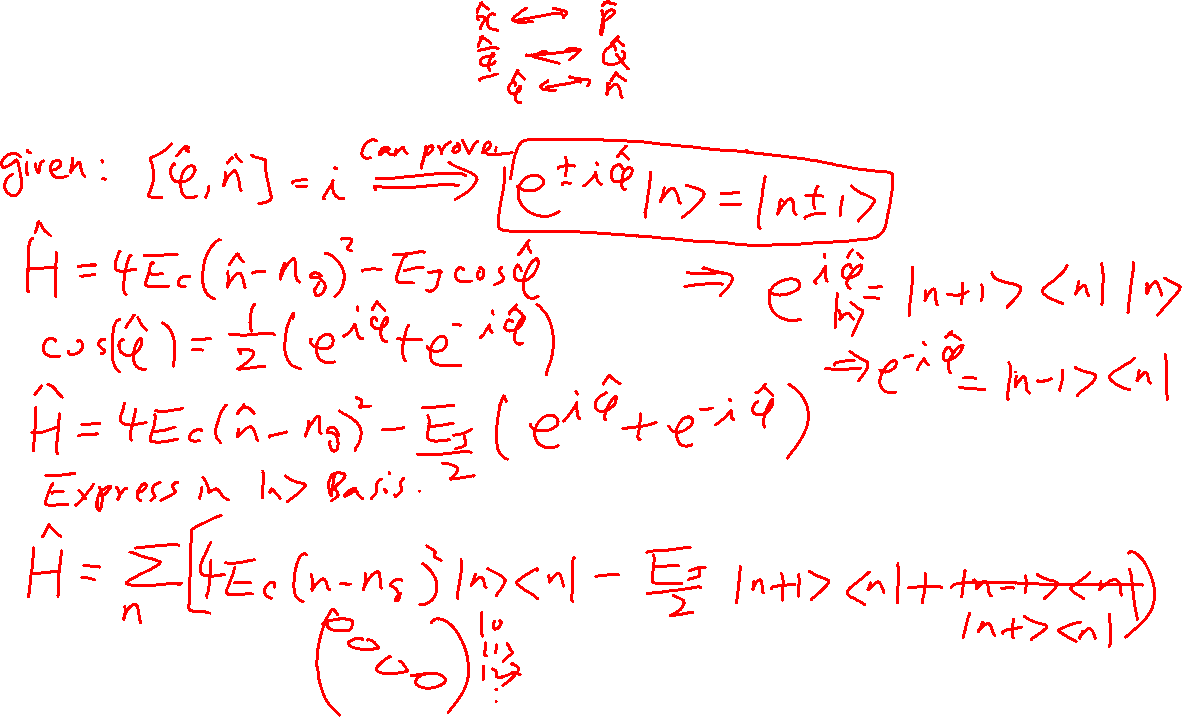 x̂ ↔ p̂
Φ̂ ↔ Q̂
φ̂ ↔ n̂
given: [φ̂, n̂] = i can prove ⟹ e^{±iφ̂} |n> = |n±1>
Ĥ = 4Ec(n̂ - ng)² - EJ cosφ̂
⇒ e^{iφ̂} |n> = |n+1> <n| |n>
cos(φ̂) = 1/2 (e^{iφ̂} + e^{-iφ̂})
⇒ e^{-iφ̂} = |n-1> <n|
Ĥ = 4Ec(n̂ - ng)² - EJ/2 (e^{iφ̂} + e^{-iφ̂})
Express in |n> Basis.
Ĥ = Σn [4Ec(n-ng)² |n><n| - EJ/2 |n+1> <n| + ~~|n-1> <n|~~)
|n+> <n|
(0 0 0 0) |0
|1>
|2>
⋮